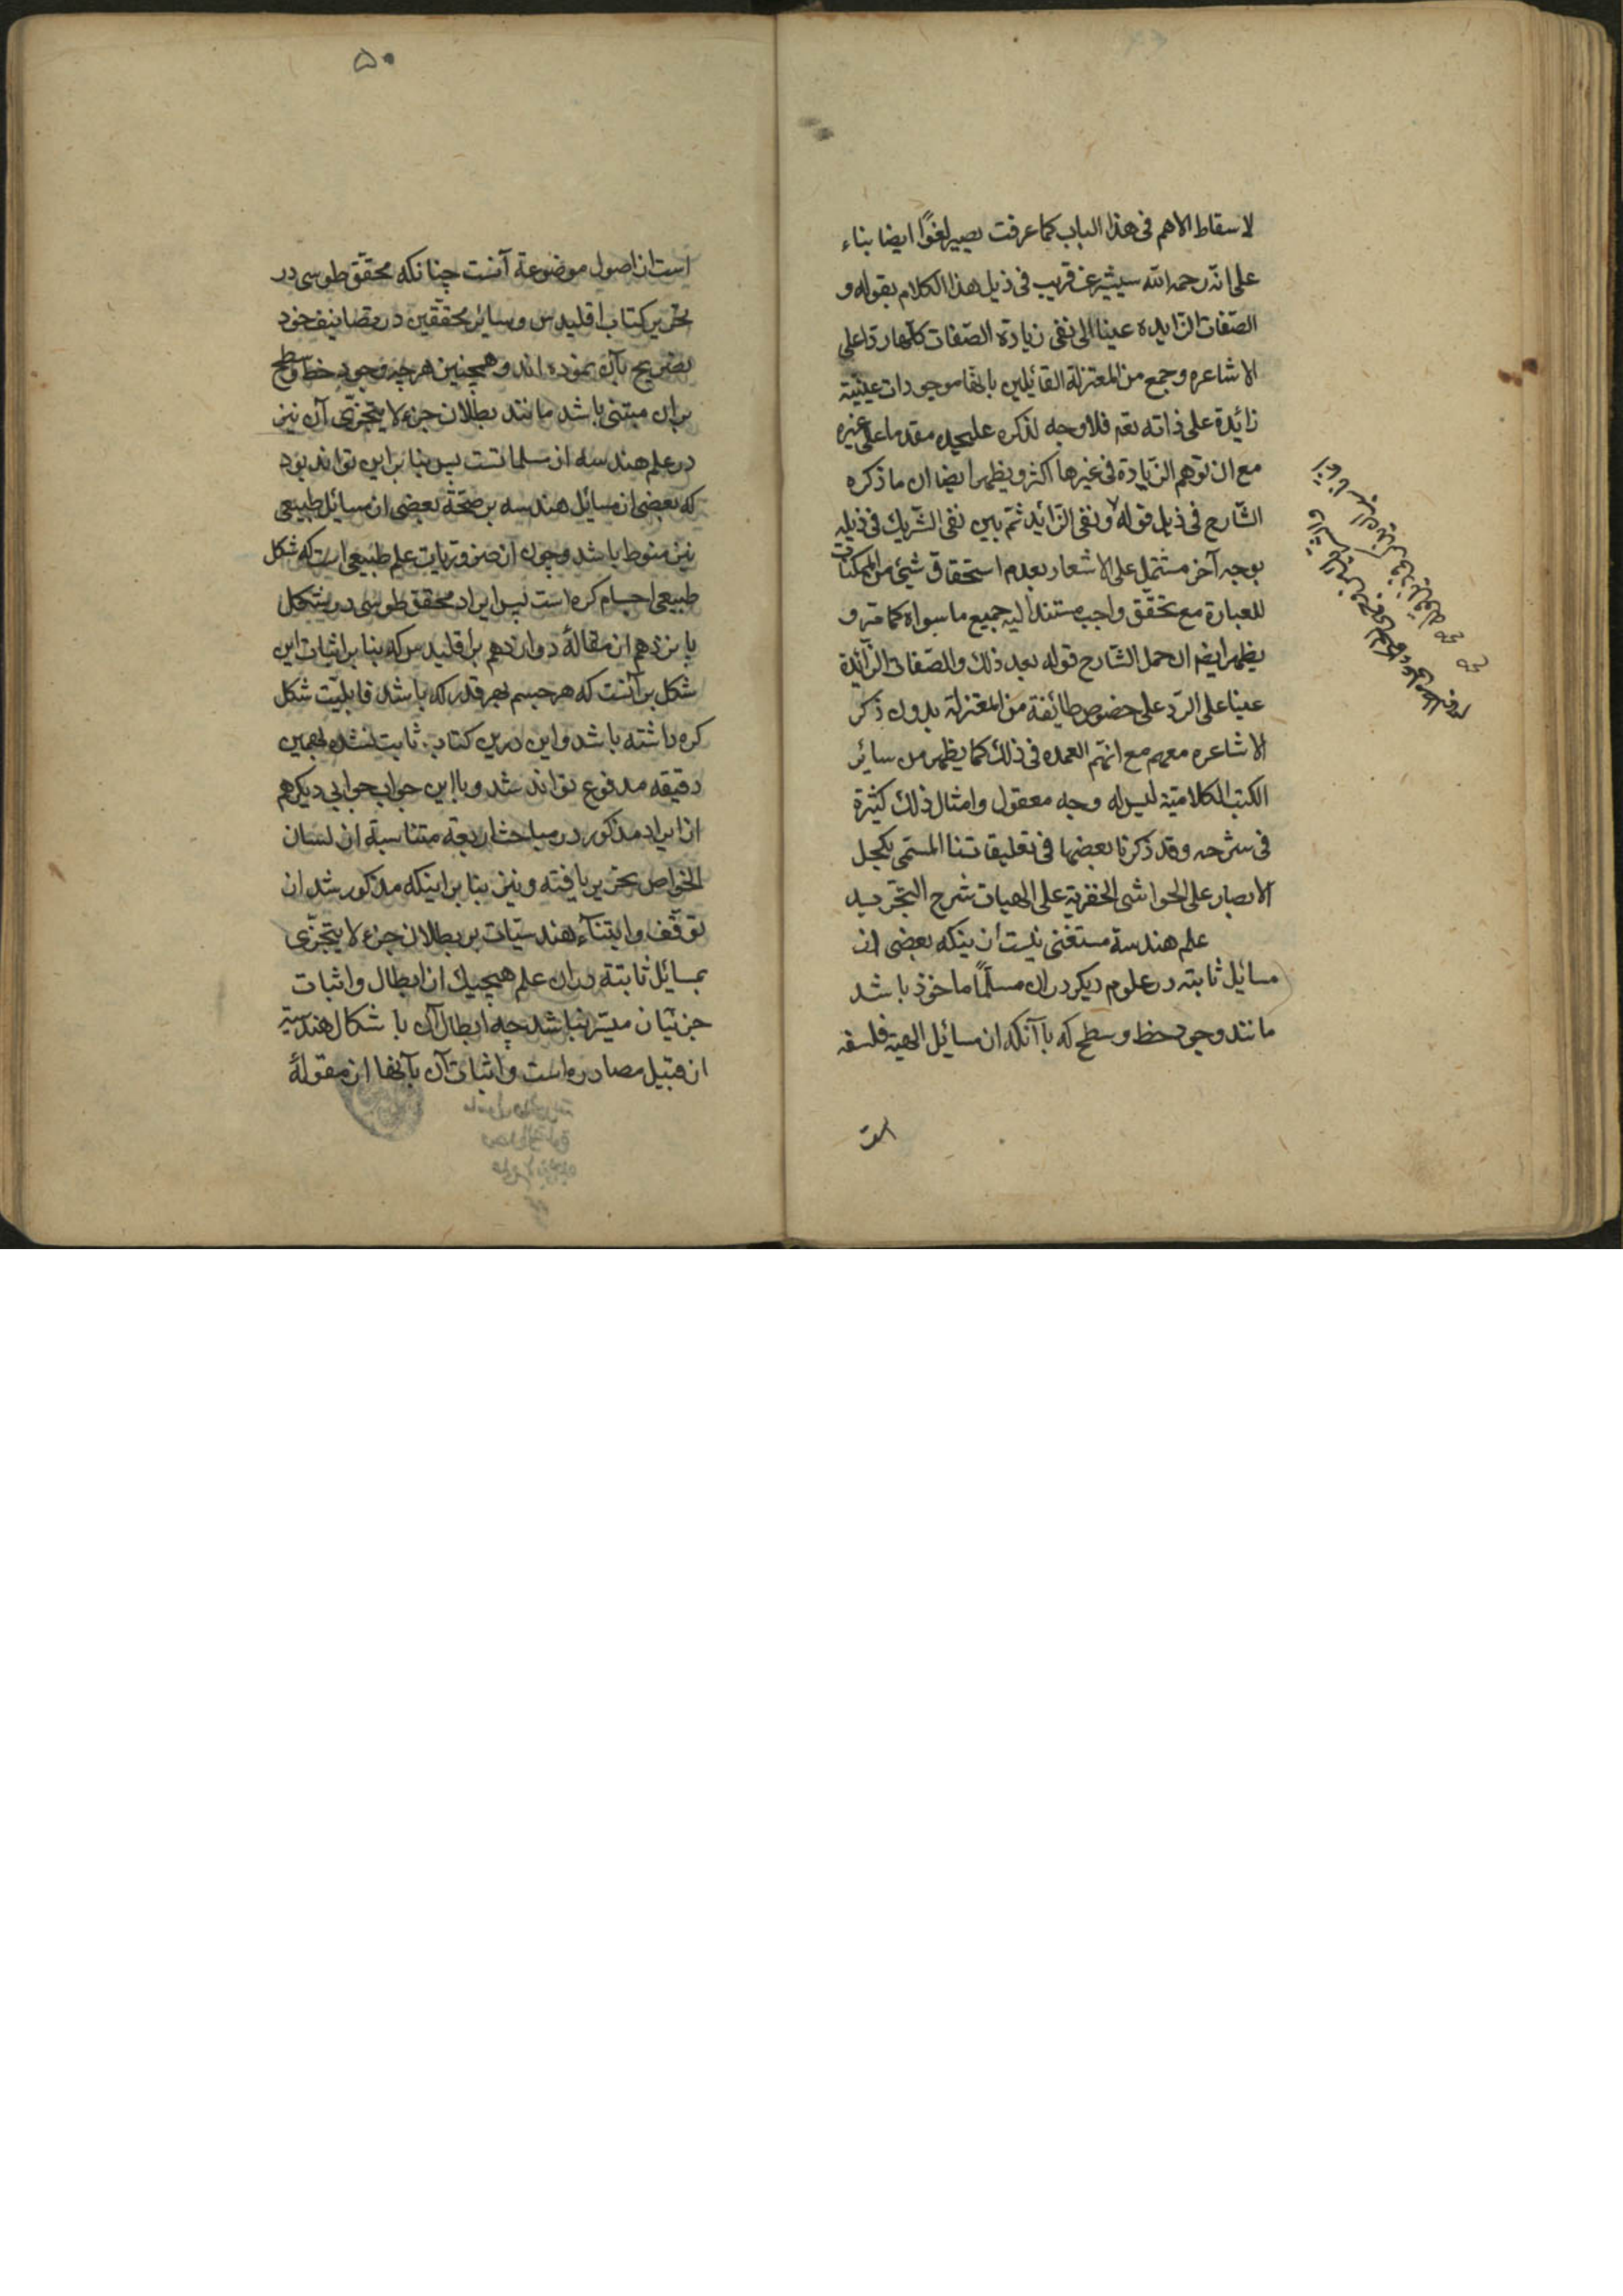 لاسقاط الاهم فی هذا الباب کما عرفت یصیر لغوًا ایضا بناء
علی انّه رحمه الله سیشیر عن قریب فی ذیل هذا الکلام بقوله و
الصّفات الزّایدة عینا الی نفی زیادة الصّفات کلّها ردّا علی
الاشاعره و جمع من المعتزلة القائیلین بانّها موجودات عینیّة
زائدة علی ذاته تعم فلا وجه لذکره علیحده مقدما علی غیره
مع ان توهم الزّیادة فی غیرها اکثر و یظهر ایضا ان ما ذکره
الشّارح فی ذیل قوله و نفی الزّائد ثمّ بین نفی الشّریك فی ذیله
بوجه آخر مشتمل علی الاشعار بعدم استحقاق شیئ من الممکنات
للعبارة مع تحقّق واجب مستند الیه جمیع ما سواه کما مرّ و
یظهر ایضم ان حمل الشّارح قوله بعد ذلك و الصّفات الزّائدة
عینا علی الرّد علی خصوص طائفة من المعتزلة بدون ذکر
الاشاعره معهم مع انّهم العمده فی ذلك کما یظهر من سائر
الکتب الکلامیّة لیس له وجه معقول و امثال ذلك کثیرة
فی شرحه و قد ذکرنا بعضها فی تعلیقاتنا المسمّی بکحل
الابصار علی الحواشی الخفریّة علی الهیات شرح التجرید
علم هندسة مستغنی نیست از ینکه بعضی از
مسائل ثابته در علوم دیکر در ان مسلّمًا ماخوذ باشد
مانند وجود خط و سطح که با آنکه از مسائل الهیة فلسفه
است
۵۰
است از اصول موضوعة آنست چنانکه محقّق طوسی در
تحریر کتاب اقلیدس و سائر محقّقین در تصانیف خود
تصریح بآن نموده اند و همچنین هر چه وجود خط و سطح
بران مبتنی باشد مانند بطلان جزء لا یتجزّی آن نیز
در علم هندسه از مسلماتست پس بنابراین تواند بود
که بعضی از مسائل هندسه بر صحّة بعضی از مسائل طبیعی
نیز منوط باشد و چون از ضروریات علم طبیعی است که شکل
طبیعی اجسام کره است پس ایراد محقق طوسی در شکل
پانزدهم از مقالهٔ دوازدهم بر اقلیدس که بنا بر اثبات این
شکل بر آنست که هر جسم بهر قدر که باشد قابلیّت شکل
کره داشته باشد و این درین کتاب ثابت نشده بهمین
دقیقه مدفوع تواند شد و با این جواب جوابی دیکر هم
از ایراد مذکور در مباحث اربعة متناسبة از لسان
الخواص تحریر یافته و نیز بنا بر اینکه مذکور شد از
توقّف و ابتناء هندسیّات بر بطلان جزء لا یتجزّی
بمسائل ثابتة در ان علم هیچیك از ابطال و اثبات
جزئیان میسّر نباشد چه ابطال آن با شکال هندسیّه
از قبیل مصادره است و اثبات آن بآنها از مقولهٔ